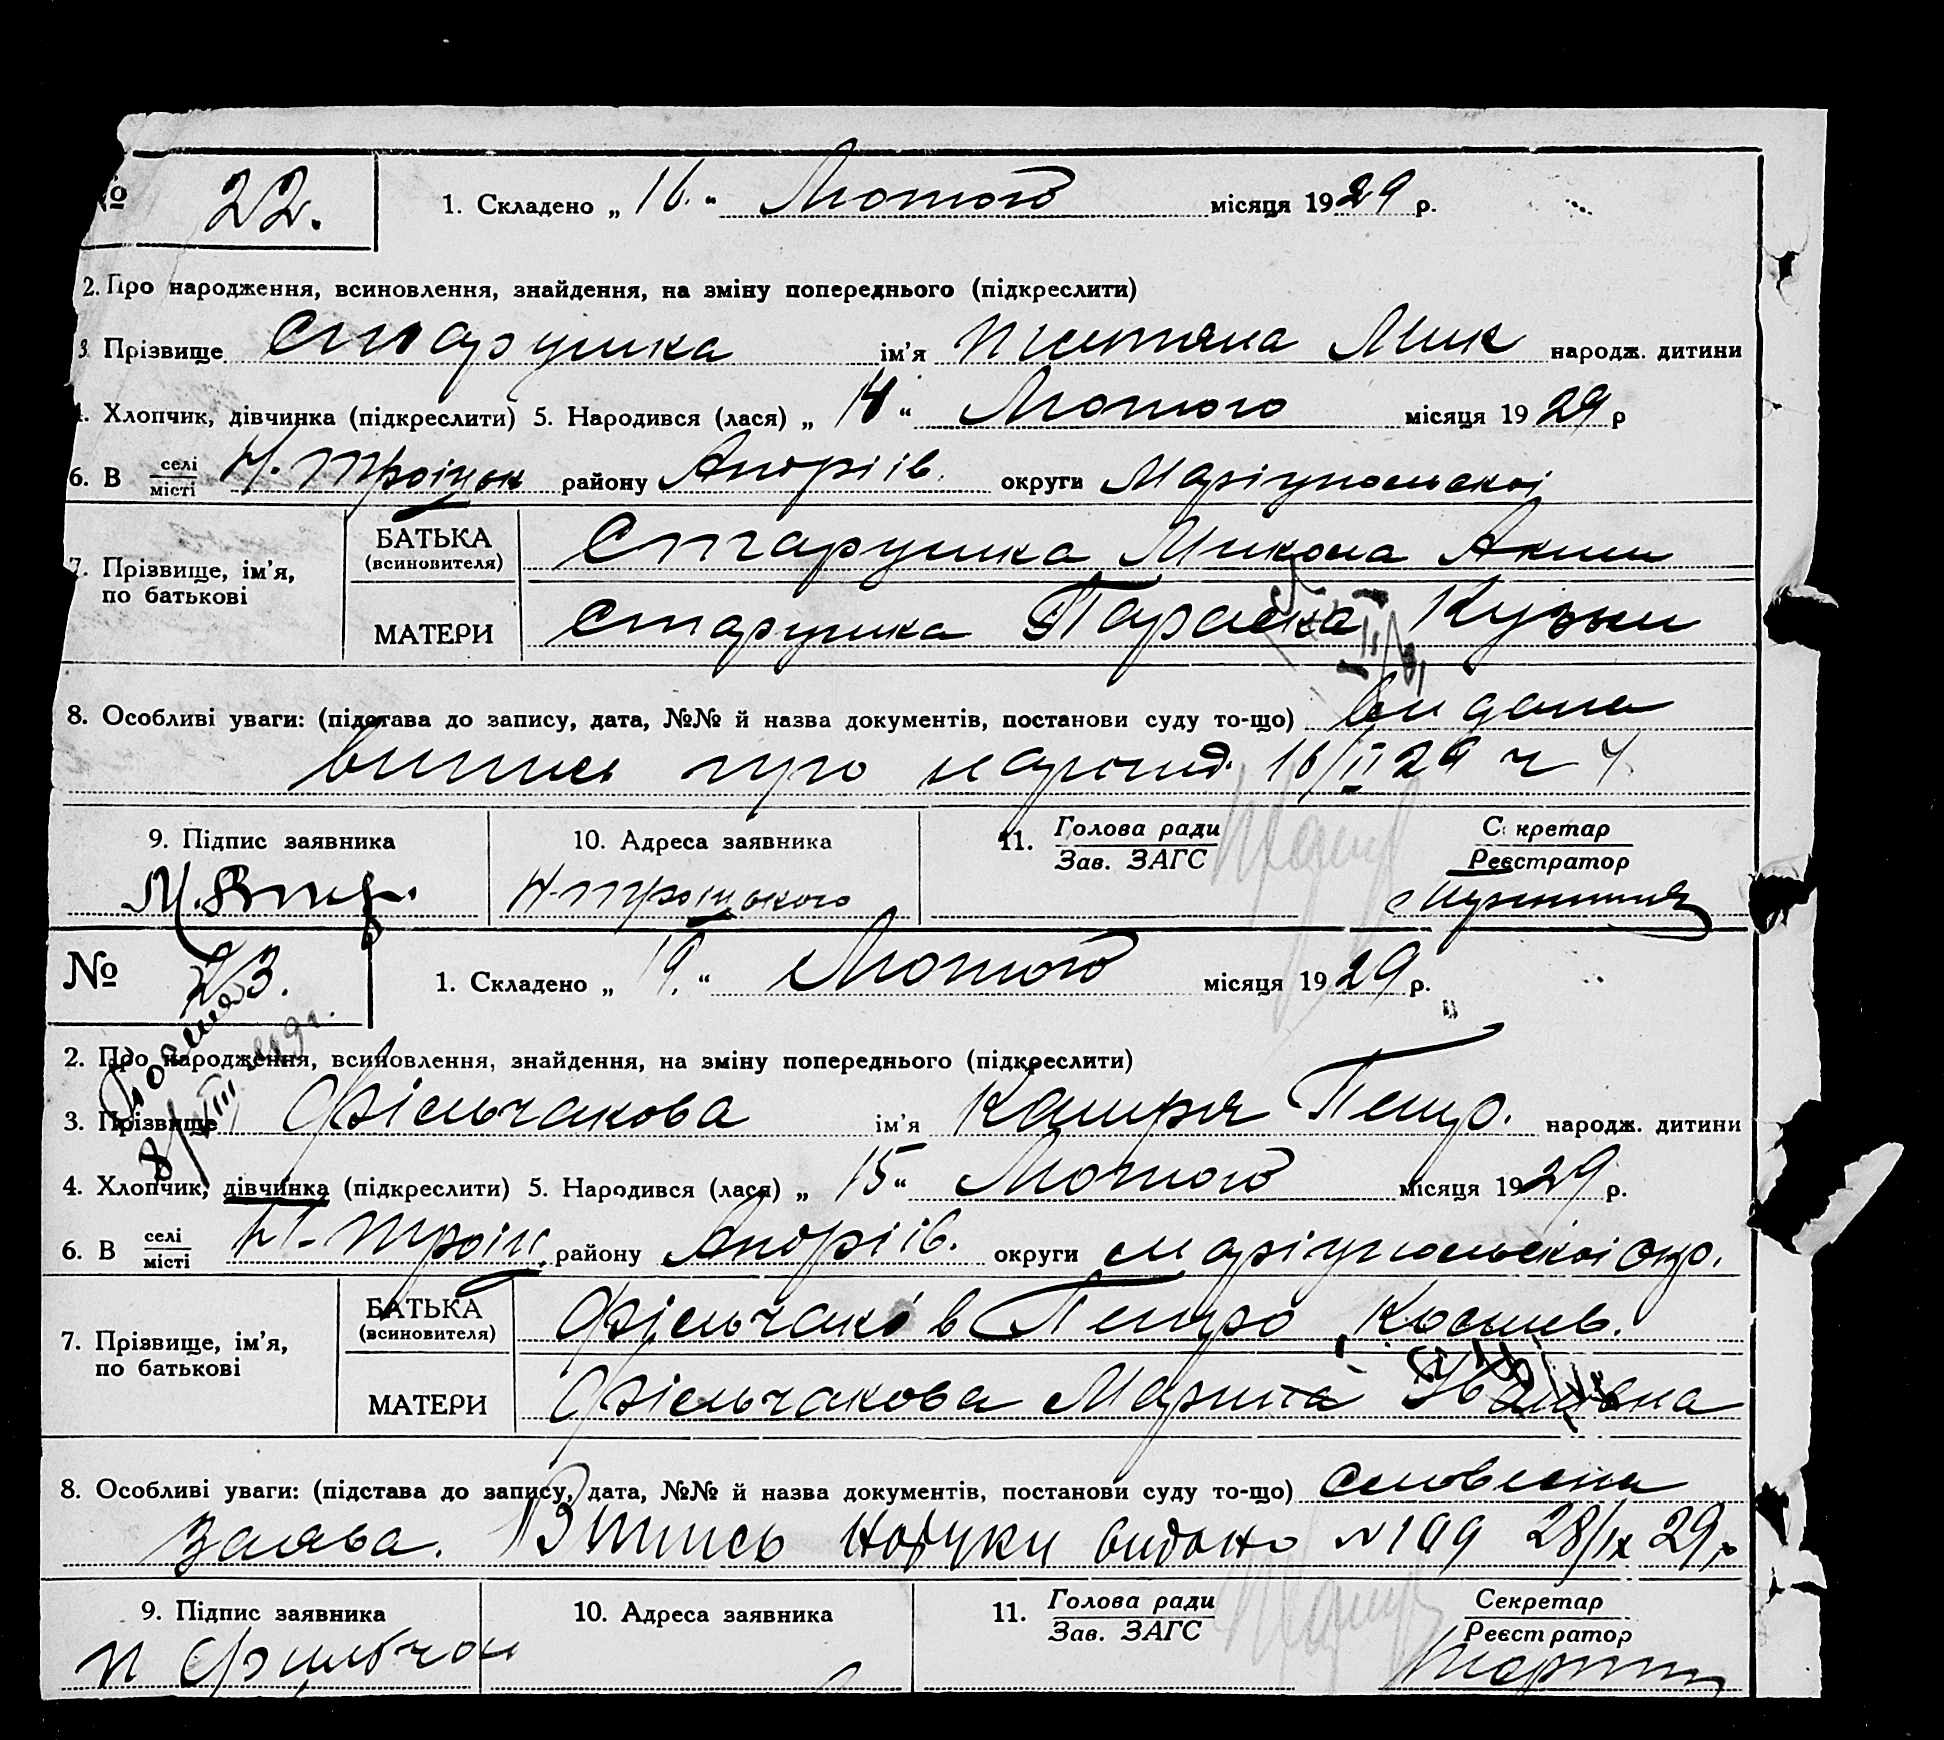 № 22. 1. Складено „ 16. “ Лютого місяця 1929 р.
2. Про народження, всиновлення, знайдення, на зміну попереднього (підкреслити)
3. Прізвище Старушка ім'я Тетяна Мик народж. дитини
4. Хлопчик, дівчинка (підкреслити) 5. Народився (лася) „ 14 “ Лютого місяця 1929 р
6. В селі місті Н. Троіцьк району Андріів. округи Маріупольскоі
7. Прізвище, ім'я, по батькові
БАТЬКА (всиновителя) Старушка Микола Аким
МАТЕРИ Старушка Параска Кузьм
8. Особливі уваги: (підстава до запису, дата, №№ й назва документів, постанови суду то-що) Видана
випись про народ. 16/II 29 ч
9. Підпис заявника 10. Адреса заявника 11. Голова ради Зав. ЗАГС Секретар Реєстратор
Н-Троіцького
№ 23. 1. Складено „ 19. “ Лютого місяця 1929 р.
2. Про народження, всиновлення, знайдення, на зміну попереднього (підкреслити)
3. Прізвище Фільчакова ім'я Петр. народж. дитини
4. Хлопчик, дівчинка (підкреслити) 5. Народився (лася) „ 15 “ Лютого місяця 1929 р.
6. В селі місті Н-Троіц. району Андріів. округи Маріупольскоі окр.
7. Прізвище, ім'я, по батькові
БАТЬКА (всиновителя) Фільчаков Петро Косьмів.
МАТЕРИ Фільчакова Марина Іванівна
8. Особливі уваги: (підстава до запису, дата, №№ й назва документів, постанови суду то-що) Словесна
заява. Випись на руки видано N 199 28/IX 29 р
9. Підпис заявника 10. Адреса заявника 11. Голова ради Зав. ЗАГС Секретар Реєстратор
П Фильчак